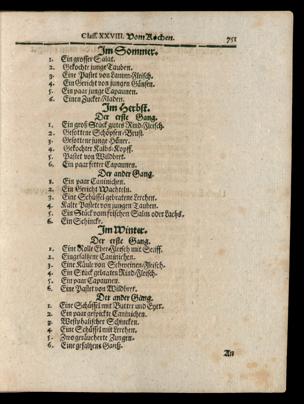 Claſſ. XXVIII. Vom Kochen. 751
Im Sommer.
1. Ein groſſer Salat.
2. Gekochte junge Tauben.
3. Eine Paſtet von Lamm-Fleiſch.
4. Ein Gericht von jungen Gänſen.
5. Ein paar junge Capaunen.
6. Einen Zucker-Fladen.
Im Herbſt.
Der erſte Gang.
1. Ein groß Stück gutes Rind-Fleiſch.
2. Geſottene Schöpſen-Bruſt.
3. Geſottene junge Hüner.
4. Gekochter Kalbs-Kopff.
5. Paſtet von Wildbret.
6. Ein paar fetter Capaunen.
Der ander Gang.
1. Ein paar Caninichen.
2. Ein Gericht Wachteln.
3. Eine Schüſſel gebratene Lerchen.
4. Kalte Paſtete von jungen Tauben.
5. Ein Stück vom friſchen Salm oder Lachs.
6. Ein Schincke.
Im Winter.
Der erſte Gang.
1. Eine Rolle Eber-Fleiſch mit Senff.
2. Eingeſaltzene Caninichen.
3. Eine Käule von Schweinen-Fleiſch.
4. Ein Stück gebraten Rind-Fleiſch.
5. Ein paar Capaunen.
6. Eine Paſtet von Wildbret.
Der ander Gang.
1. Eine Schüſſel mit Butter und Eyer.
2. Ein paar geſpickte Caninichen.
3. Weſtphaliſcher Schincken.
4. Eine Schüſſel mit Lerchen.
5. Zwo geräucherte Zungen.
6. Eine geſaltzene Ganß.